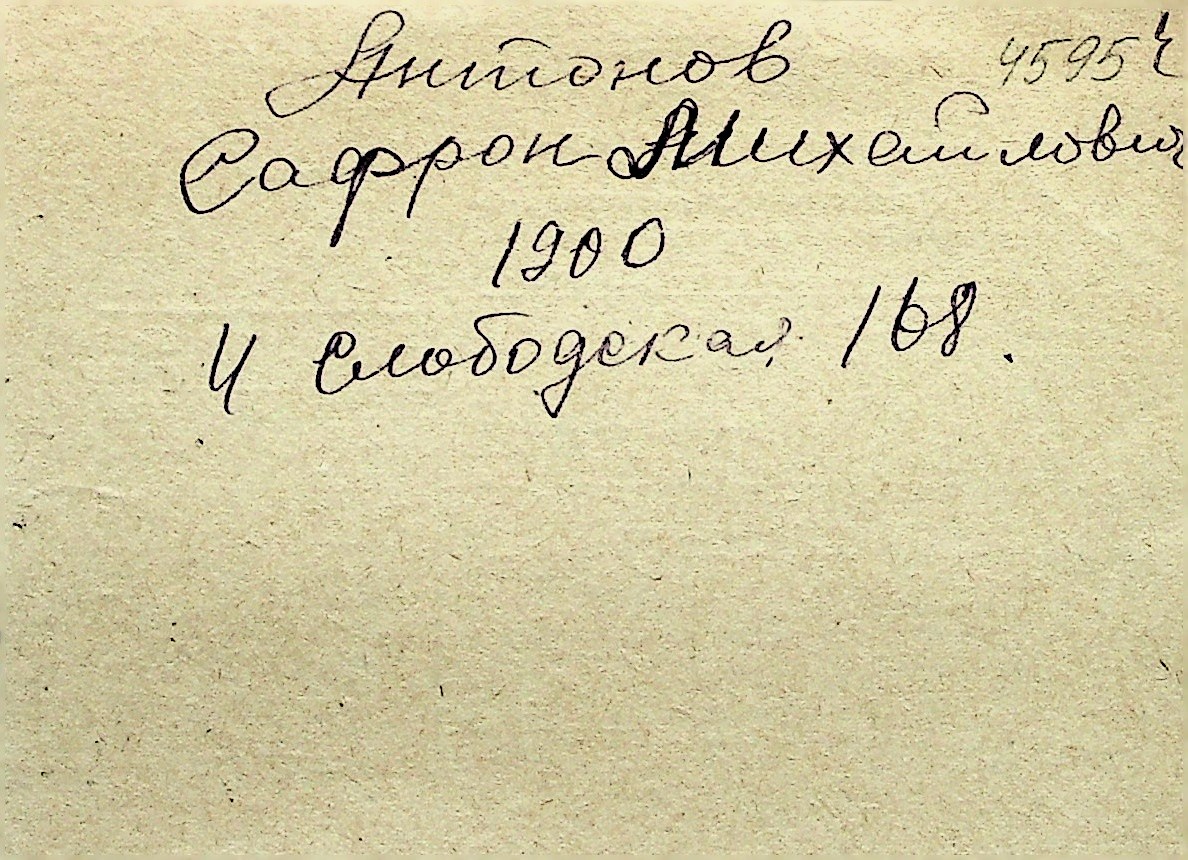 Антонов
Сафрон Михайлович
1900
4 Слободская 168.